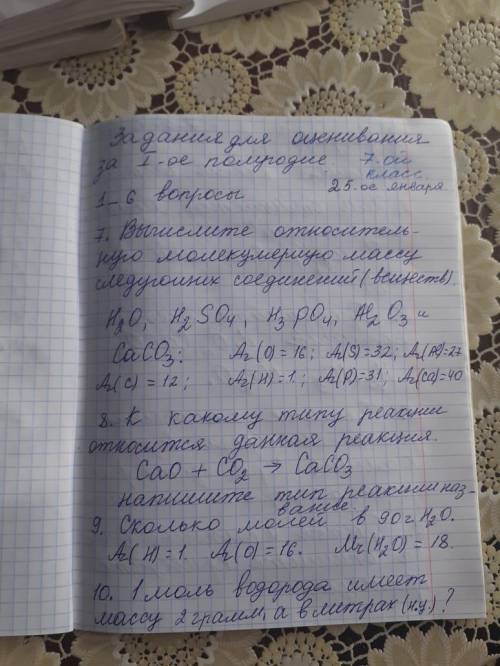 Задания для оценивания
за I-ое полугодие 7-ой
класс
1_6 вопросы 25-ое января
7. Вычислите относитель-
ную молекулярную массу
следующих соединений (веществ).
H2O, H2SO4, H3PO4, Al2O3 и
CaCO3: Ar(O)=16; Ar(S)=32; Ar(Al)=27
Ar(C)=12; Ar(H)=1; Ar(P)=31; Ar(Ca)=40
8. К какому типу реакции
относится данная реакция.
CaO + CO2 → CaCO3
напишите тип реакции наз-
вание.
9. Сколько молей в 90г H2O.
Ar(H)=1. Ar(O)=16. Mr(H2O)=18.
10. 1 моль водорода имеет
массу 2 грамм, а в литрах (н.у.)?